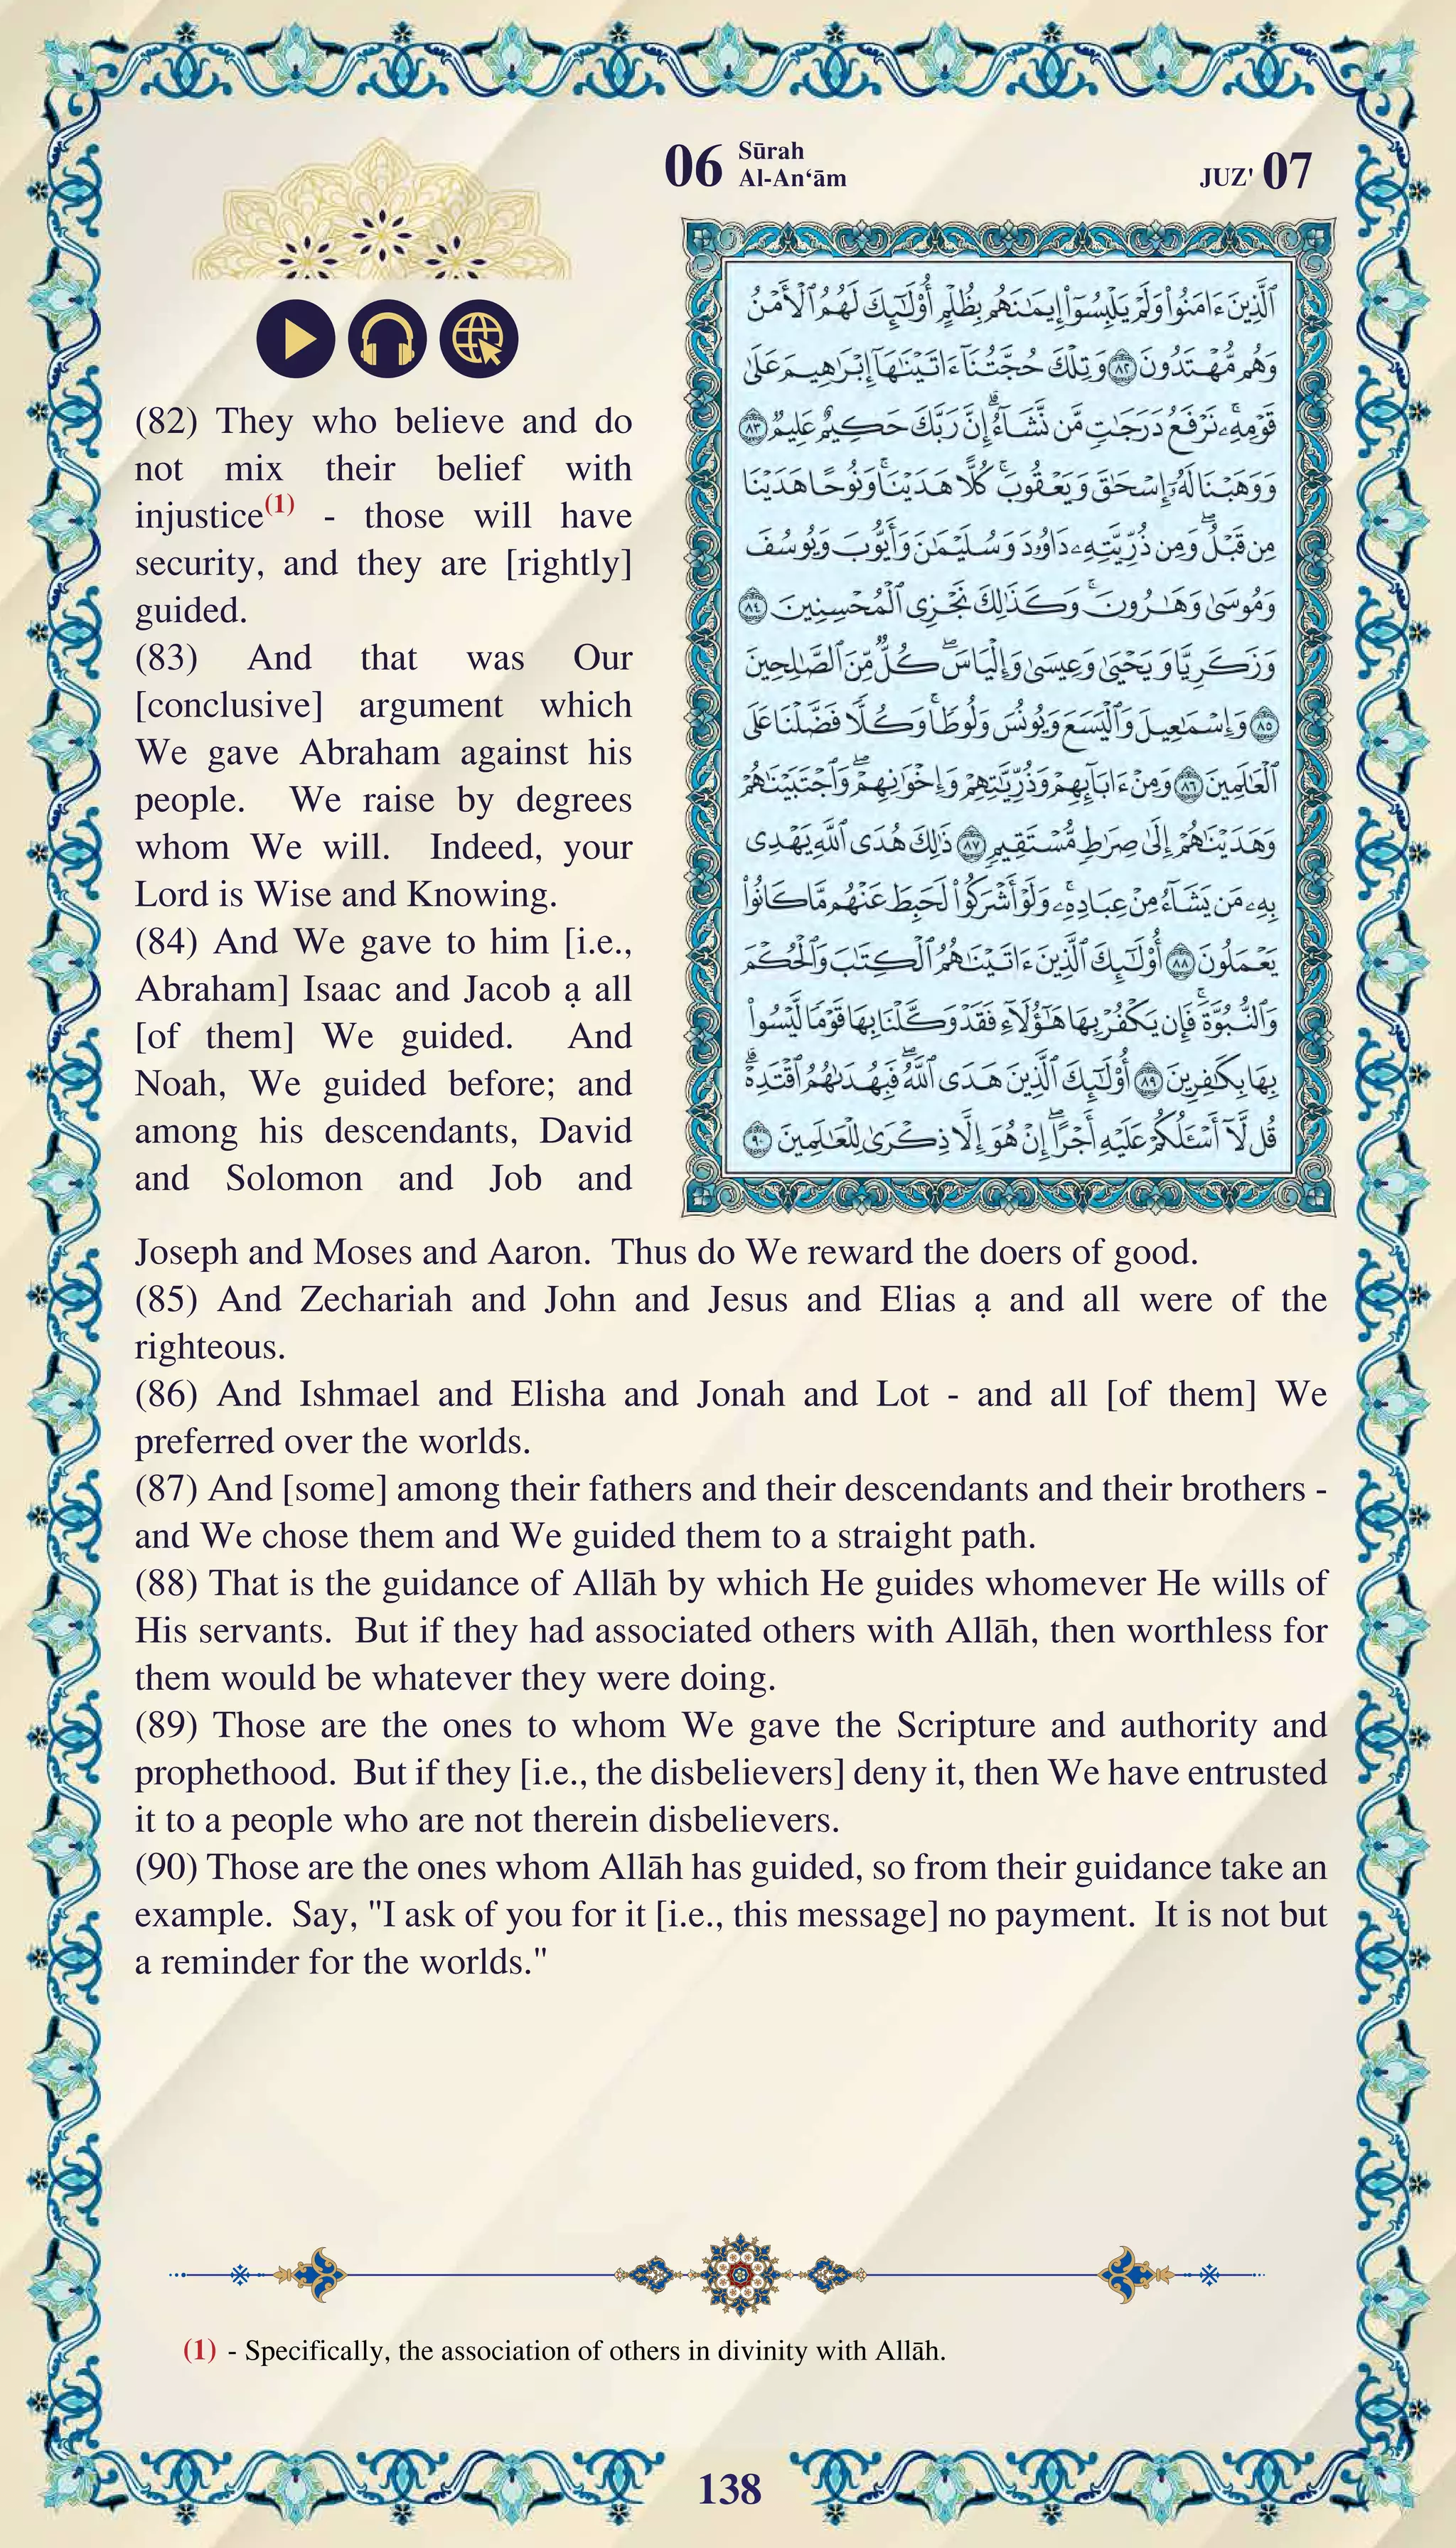 06 Sūrah
Al-An‘ām
JUZ' 07
ٱلَّذِينَ ءَامَنُوا۟ وَلَمْ يَلْبِسُوٓا۟ إِيمَـٰنَهُم بِظُلْمٍ أُو۟لَـٰٓئِكَ لَهُمُ ٱلْأَمْنُ
وَهُم مُّهْتَدُونَ ٨٢ وَتِلْكَ حُجَّتُنَآ ءَاتَيْنَـٰهَآ إِبْرَٰهِيمَ عَلَىٰ
قَوْمِهِۦ ۚ نَرْفَعُ دَرَجَـٰتٍ مَّن نَّشَآءُ ۗ إِنَّ رَبَّكَ حَكِيمٌ عَلِيمٌ ٨٣
وَوَهَبْنَا لَهُۥٓ إِسْحَـٰقَ وَيَعْقُوبَ ۚ كُلًّا هَدَيْنَا ۚ وَنُوحًا هَدَيْنَا
مِن قَبْلُ ۖ وَمِن ذُرِّيَّتِهِۦ دَاوُۥدَ وَسُلَيْمَـٰنَ وَأَيُّوبَ وَيُوسُفَ
وَمُوسَىٰ وَهَـٰرُونَ ۚ وَكَذَٰلِكَ نَجْزِى ٱلْمُحْسِنِينَ ٨٤
وَزَكَرِيَّا وَيَحْيَىٰ وَعِيسَىٰ وَإِلْيَاسَ ۖ كُلٌّ مِّنَ ٱلصَّـٰلِحِينَ
٨٥ وَإِسْمَـٰعِيلَ وَٱلْيَسَعَ وَيُونُسَ وَلُوطًا ۚ وَكُلًّا فَضَّلْنَا عَلَى
ٱلْعَـٰلَمِينَ ٨٦ وَمِنْ ءَابَآئِهِمْ وَذُرِّيَّـٰتِهِمْ وَإِخْوَٰنِهِمْ ۖ وَٱجْتَبَيْنَـٰهُمْ
وَهَدَيْنَـٰهُمْ إِلَىٰ صِرَٰطٍ مُّسْتَقِيمٍ ٨٧ ذَٰلِكَ هُدَى ٱللَّهِ يَهْدِى
بِهِۦ مَن يَشَآءُ مِنْ عِبَادِهِۦ ۚ وَلَوْ أَشْرَكُوا۟ لَحَبِطَ عَنْهُم مَّا كَانُوا۟
يَعْمَلُونَ ٨٨ أُو۟لَـٰٓئِكَ ٱلَّذِينَ ءَاتَيْنَـٰهُمُ ٱلْكِتَـٰبَ وَٱلْحُكْمَ
وَٱلنُّبُوَّةَ ۚ فَإِن يَكْفُرْ بِهَا هَـٰٓؤُلَآءِ فَقَدْ وَكَّلْنَا بِهَا قَوْمًا لَّيْسُوا۟
بِهَا بِكَـٰفِرِينَ ٨٩ أُو۟لَـٰٓئِكَ ٱلَّذِينَ هَدَى ٱللَّهُ ۖ فَبِهُدَىٰهُمُ ٱقْتَدِهْ ۗ
قُل لَّآ أَسْـَٔلُكُمْ عَلَيْهِ أَجْرًا ۖ إِنْ هُوَ إِلَّا ذِكْرَىٰ لِلْعَـٰلَمِينَ ٩٠
(82) They who believe and do
not mix their belief with
injustice(1) - those will have
security, and they are [rightly]
guided.
(83) And that was Our
[conclusive] argument which
We gave Abraham against his
people. We raise by degrees
whom We will. Indeed, your
Lord is Wise and Knowing.
(84) And We gave to him [i.e.,
Abraham] Isaac and Jacob ạ all
[of them] We guided. And
Noah, We guided before; and
among his descendants, David
and Solomon and Job and
Joseph and Moses and Aaron. Thus do We reward the doers of good.
(85) And Zechariah and John and Jesus and Elias ạ and all were of the
righteous.
(86) And Ishmael and Elisha and Jonah and Lot - and all [of them] We
preferred over the worlds.
(87) And [some] among their fathers and their descendants and their brothers -
and We chose them and We guided them to a straight path.
(88) That is the guidance of Allāh by which He guides whomever He wills of
His servants. But if they had associated others with Allāh, then worthless for
them would be whatever they were doing.
(89) Those are the ones to whom We gave the Scripture and authority and
prophethood. But if they [i.e., the disbelievers] deny it, then We have entrusted
it to a people who are not therein disbelievers.
(90) Those are the ones whom Allāh has guided, so from their guidance take an
example. Say, "I ask of you for it [i.e., this message] no payment. It is not but
a reminder for the worlds."
(1) - Specifically, the association of others in divinity with Allāh.
138